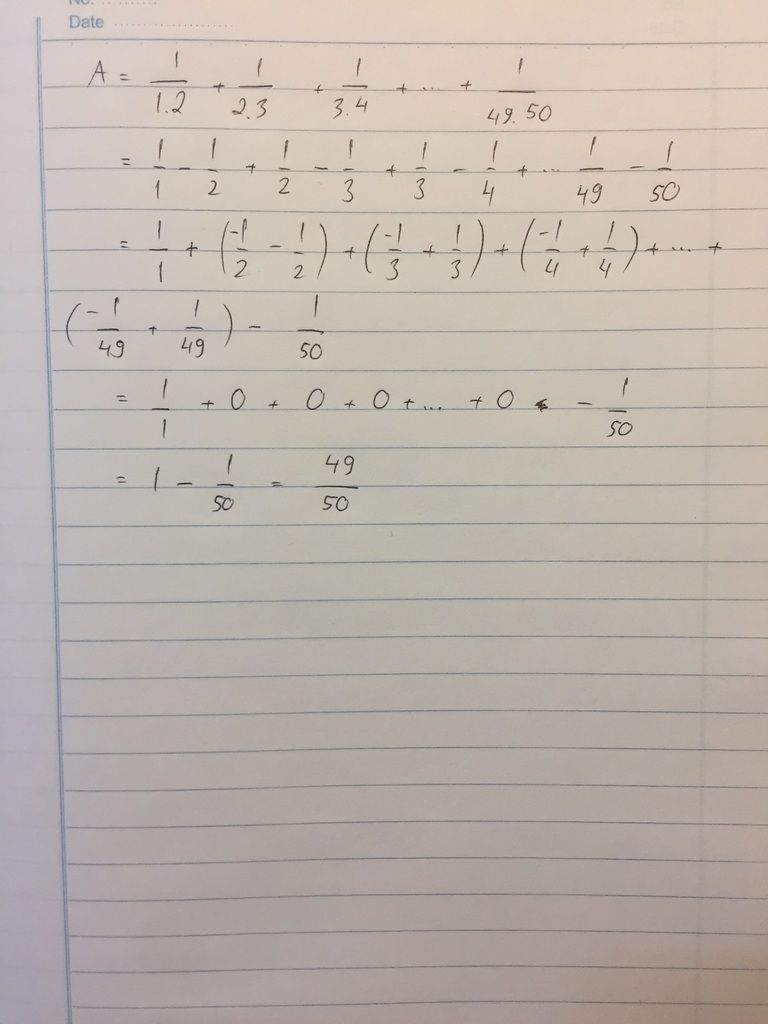 No. ............
Date ....................
A = 1/1.2 + 1/2.3 + 1/3.4 + ... + 1/49.50
= 1/1 - 1/2 + 1/2 - 1/3 + 1/3 - 1/4 + ... 1/49 - 1/50
= 1/1 + (-1/2 - 1/2) + (-1/3 + 1/3) + (-1/4 + 1/4) + ... +
(-1/49 + 1/49) - 1/50
= 1/1 + 0 + 0 + 0 + ... + 0 - 1/50
= 1 - 1/50 = 49/50